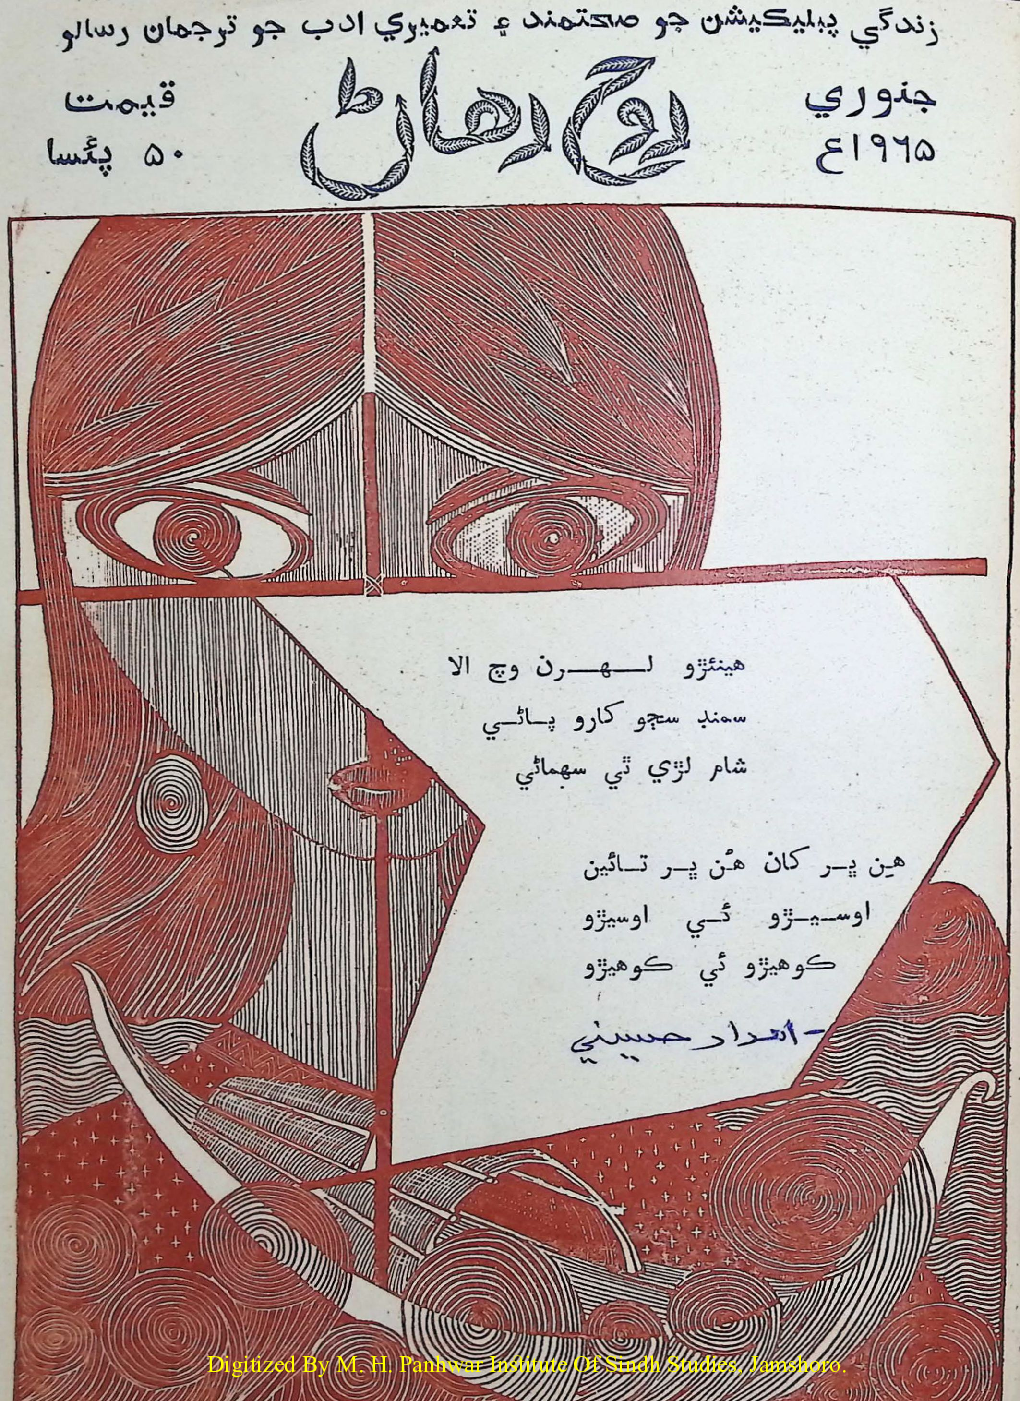 زندگي پبليڪيشن جو صحتمند ۽ تعميري ادب جو ترجمان رسالو
جنوري
۱۹٦۵ع
روح رهاڻ
قيمت
۵۰ پئسا
هينئڙو لهرن وچ الا
سمنڊ سڄو ڪارو پاڻي
شام لڙي ٿي سهماڻي
هِن ڀر کان هُن ڀر تائين
اوسيڙو ئي اوسيڙو
ڪوهيڙو ئي ڪوهيڙو
- امداد حسيني
Digitized By M. H. Panhwar Institute Of Sindh Studies, Jamshoro.